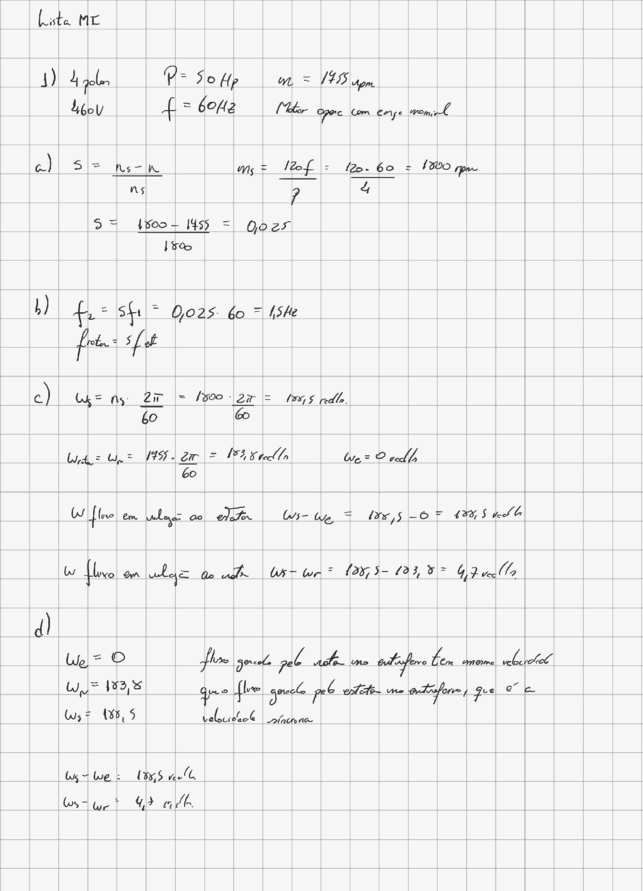 Lista MI
1) 4 polos P = 50Hp m = 1755 rpm
460V f = 60Hz Motor opera com carga nominal
a) S = ns - n / ns ms = 120f / p = 120. 60 / 4 = 1800 rpm
S = 1800 - 1755 / 1800 = 0,025
b) f2 = sf1 = 0,025. 60 = 1,5Hz
frotor = sfest
c) ws = ns. 2π / 60 = 1800. 2π / 60 = 188,5 rad/s.
wrotor = wr = 1755. 2π / 60 = 183,8 rad/s we = 0 rad/s
W fluxo em relação ao estator ws-we = 188,5 - 0 = 188,5 rad/s
W fluxo em relação ao rotor ws-wr = 188,5 - 183,8 = 4,7 rad/s
d)
we = 0 fluxo gerado pelo rotor no entreferro tem mesma velocidade
wr = 183,8 que o fluxo gerado pelo estator no entreferro, que é a
ws = 188,5 velocidade síncrona
ws-we = 188,5 rad/s
ws-wr = 4,7 rad/s.